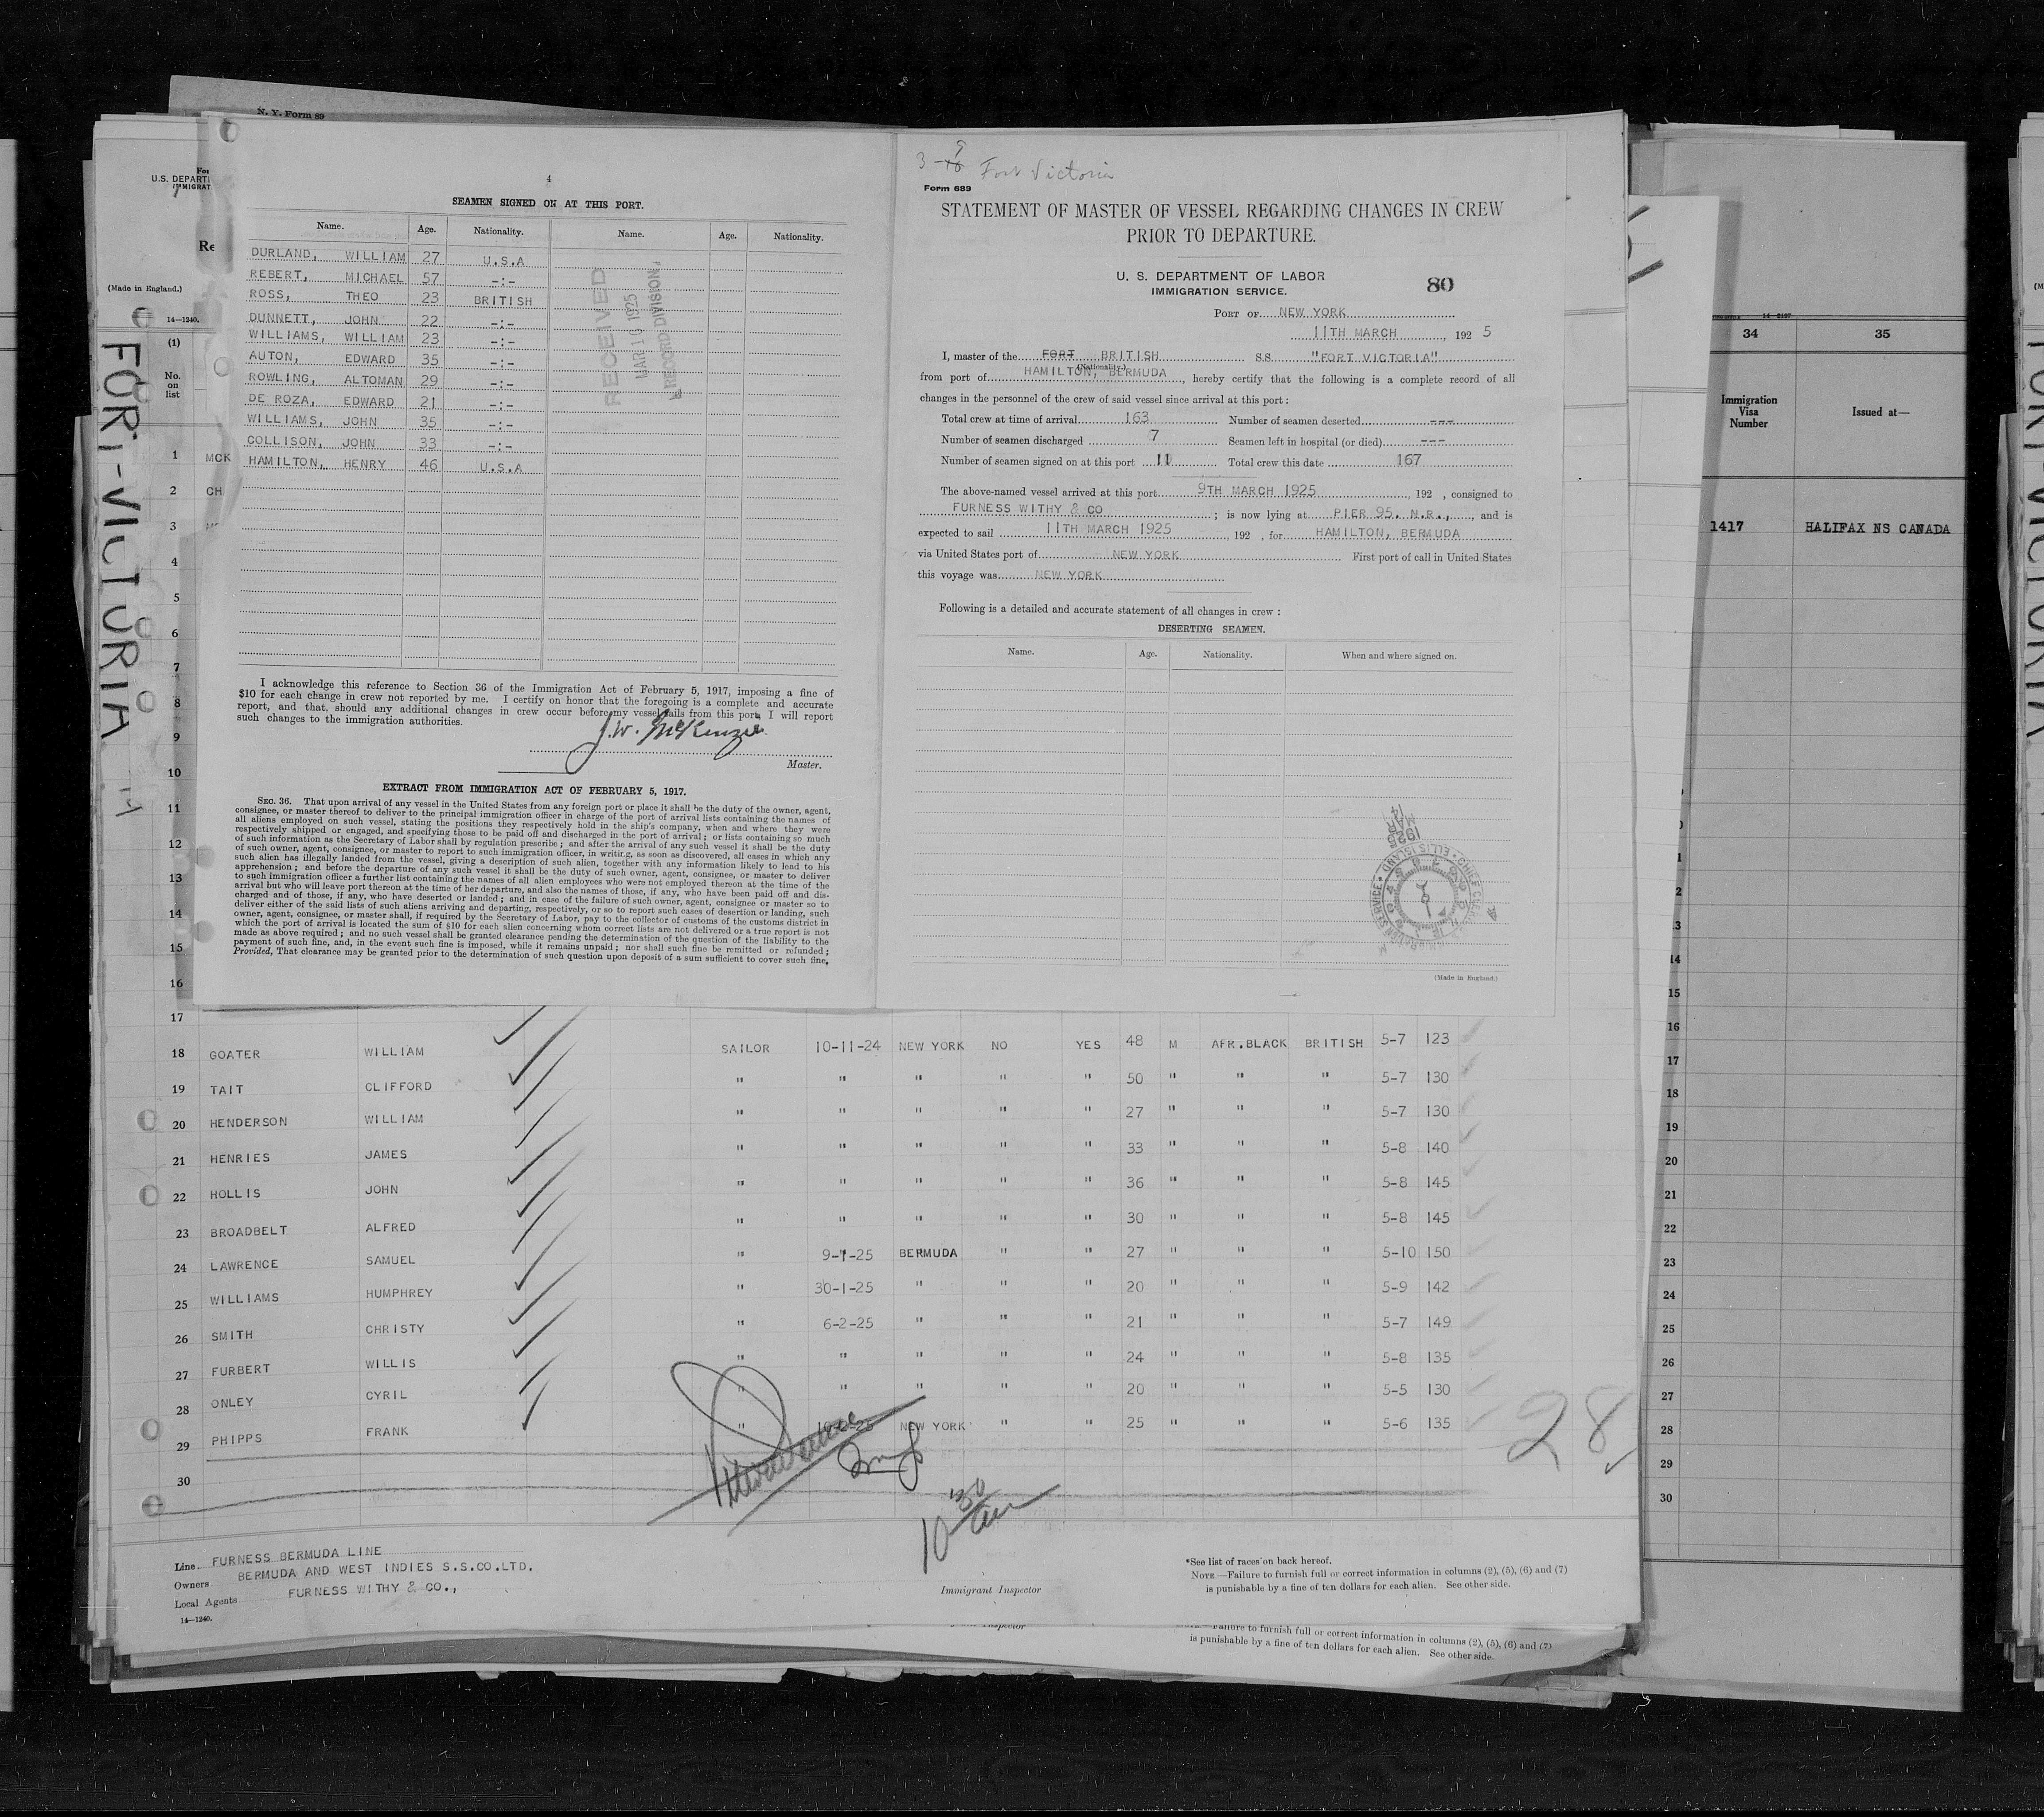 N. Y. Form 89
U.S. DEPARTI
IMMIGRAT
Re
(Made in England.)
14—1240.
(1)
No.
on
list
FORT-VICTORIA
1 MCK
2 CH
3
4
5
6
7
8
9
10
11
12
13
14
15
16
17
4
SEAMEN SIGNED ON AT THIS PORT.
Name. Age. Nationality. Name. Age. Nationality.
DURLAND, WILLIAM 27 U.S.A
REBERT, MICHAEL 57 -:-
ROSS, THEO 23 BRITISH
DUNNETT, JOHN 22 -:-
WILLIAMS, WILLIAM 23 -:-
AUTON, EDWARD 35 -:-
ROWLING, ALTOMAN 29 -:-
DE ROZA, EDWARD 21 -:-
WILLIAMS, JOHN 35 -:-
COLLISON, JOHN 33 -:-
HAMILTON, HENRY 46 U.S.A
RECEIVED
MAR 1 1925
RECORD DIVISION
I acknowledge this reference to Section 36 of the Immigration Act of February 5, 1917, imposing a fine of
$10 for each change in crew not reported by me. I certify on honor that the foregoing is a complete and accurate
report, and that, should any additional changes in crew occur before my vessel sails from this port, I will report
such changes to the immigration authorities.
J.W. McKenzie
Master.
EXTRACT FROM IMMIGRATION ACT OF FEBRUARY 5, 1917.
SEC. 36. That upon arrival of any vessel in the United States from any foreign port or place it shall be the duty of the owner, agent,
consignee, or master thereof to deliver to the principal immigration officer in charge of the port of arrival lists containing the names of
all aliens employed on such vessel, stating the positions they respectively hold in the ship's company, when and where they were
respectively shipped or engaged, and specifying those to be paid off and discharged in the port of arrival; or lists containing so much
of such information as the Secretary of Labor shall by regulation prescribe; and after the arrival of any such vessel it shall be the duty
of such owner, agent, consignee, or master to report to such immigration officer, in writing, as soon as discovered, all cases in which any
such alien has illegally landed from the vessel, giving a description of such alien, together with any information likely to lead to his
apprehension; and before the departure of any such vessel it shall be the duty of such owner, agent, consignee, or master to deliver
to such immigration officer a further list containing the names of all alien employees who were not employed thereon at the time of the
arrival but who will leave port thereon at the time of her departure, and also the names of those, if any, who have been paid off and dis-
charged and of those, if any, who have deserted or landed; and in case of the failure of such owner, agent, consignee or master so to
deliver either of the said lists of such aliens arriving and departing, respectively, or so to report such cases of desertion or landing, such
owner, agent, consignee, or master shall, if required by the Secretary of Labor, pay to the collector of customs of the customs district in
which the port of arrival is located the sum of $10 for each alien concerning whom correct lists are not delivered or a true report is not
made as above required; and no such vessel shall be granted clearance pending the determination of the question of the liability to the
payment of such fine, and, in the event such fine is imposed, while it remains unpaid; nor shall such fine be remitted or refunded;
Provided, That clearance may be granted prior to the determination of such question upon deposit of a sum sufficient to cover such fine,
Fort Victoria
Form 689
STATEMENT OF MASTER OF VESSEL REGARDING CHANGES IN CREW
PRIOR TO DEPARTURE.
U. S. DEPARTMENT OF LABOR
IMMIGRATION SERVICE.
80
PORT OF NEW YORK
11TH MARCH, 192 5
I, master of the FORT BRITISH S.S. "FORT VICTORIA"
(Nationality.)
from port of HAMILTON, BERMUDA, hereby certify that the following is a complete record of all
changes in the personnel of the crew of said vessel since arrival at this port:
Total crew at time of arrival 163 Number of seamen deserted ---
Number of seamen discharged 7 Seamen left in hospital (or died) ---
Number of seamen signed on at this port 11 Total crew this date 167
The above-named vessel arrived at this port 9TH MARCH 1925, 192 , consigned to
FURNESS WITHY & CO; is now lying at PIER 95, N.R., and is
expected to sail 11TH MARCH 1925, 192 , for HAMILTON, BERMUDA
via United States port of NEW YORK First port of call in United States
this voyage was NEW YORK
Following is a detailed and accurate statement of all changes in crew:
DESERTING SEAMEN.
Name. Age. Nationality. When and where signed on.
1925
MAR
ELLIS ISLAND
(Made in England.)
18 GOATER WILLIAM SAILOR 10-11-24 NEW YORK NO YES 48 M AFR.BLACK BRITISH 5-7 123
19 TAIT CLIFFORD " " " " " 50 " " " 5-7 130
20 HENDERSON WILLIAM " " " " " 27 " " " 5-7 130
21 HENRIES JAMES " " " " " 33 " " " 5-8 140
22 HOLLIS JOHN " " " " " 36 " " " 5-8 145
23 BROADBELT ALFRED " " " " " 30 " " " 5-8 145
24 LAWRENCE SAMUEL " 9-1-25 BERMUDA " " 27 " " " 5-10 150
25 WILLIAMS HUMPHREY " 30-1-25 " " " 20 " " " 5-9 142
26 SMITH CHRISTY " 6-2-25 " " " 21 " " " 5-7 149
27 FURBERT WILLIS " " " " " 24 " " " 5-8 135
28 ONLEY CYRIL " " " " " 20 " " " 5-5 130
29 PHIPPS FRANK " NEW YORK " " 25 " " " 5-6 135
30
28
10 30 am
Line FURNESS BERMUDA LINE
Owners BERMUDA AND WEST INDIES S.S.CO.LTD.
Local Agents FURNESS WITHY & CO.,
14—1240.
Immigrant Inspector
*See list of races on back hereof.
NOTE.—Failure to furnish full or correct information in columns (2), (5), (6) and (7)
is punishable by a fine of ten dollars for each alien. See other side.
Inspector
Failure to furnish full or correct information in columns (2), (5), (6) and (7)
is punishable by a fine of ten dollars for each alien. See other side.
34 35
Immigration
Visa
Number
Issued at—
1417 HALIFAX NS CANADA
14
15
16
17
18
19
20
21
22
23
24
25
26
27
28
29
30